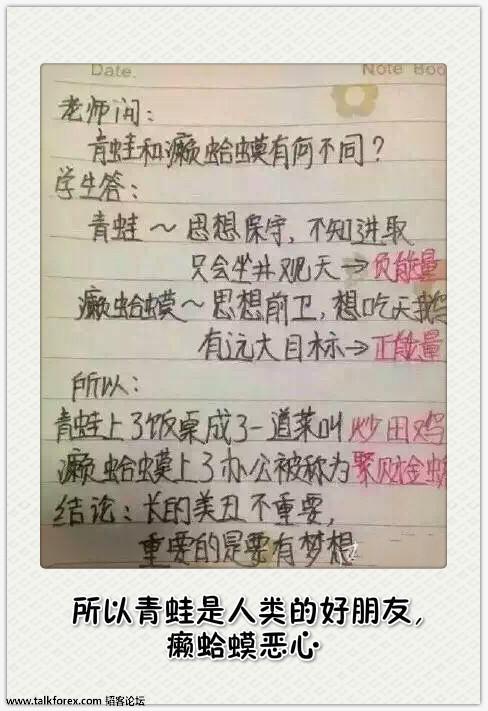 Date.
Note Boo
老师问：
青蛙和癞蛤蟆有何不同？
学生答：
青蛙～思想保守，不知进取
只会坐井观天→负能量
癞蛤蟆～思想前卫，想吃天鹅
有远大目标→正能量
所以：
青蛙上了饭桌成了一道菜叫炒田鸡
癞蛤蟆上了办公被称为聚财金蟾
结论：长的美丑不重要，
重要的是要有梦想
所以青蛙是人类的好朋友，
癞蛤蟆恶心
www.talkforex.com 韬客论坛